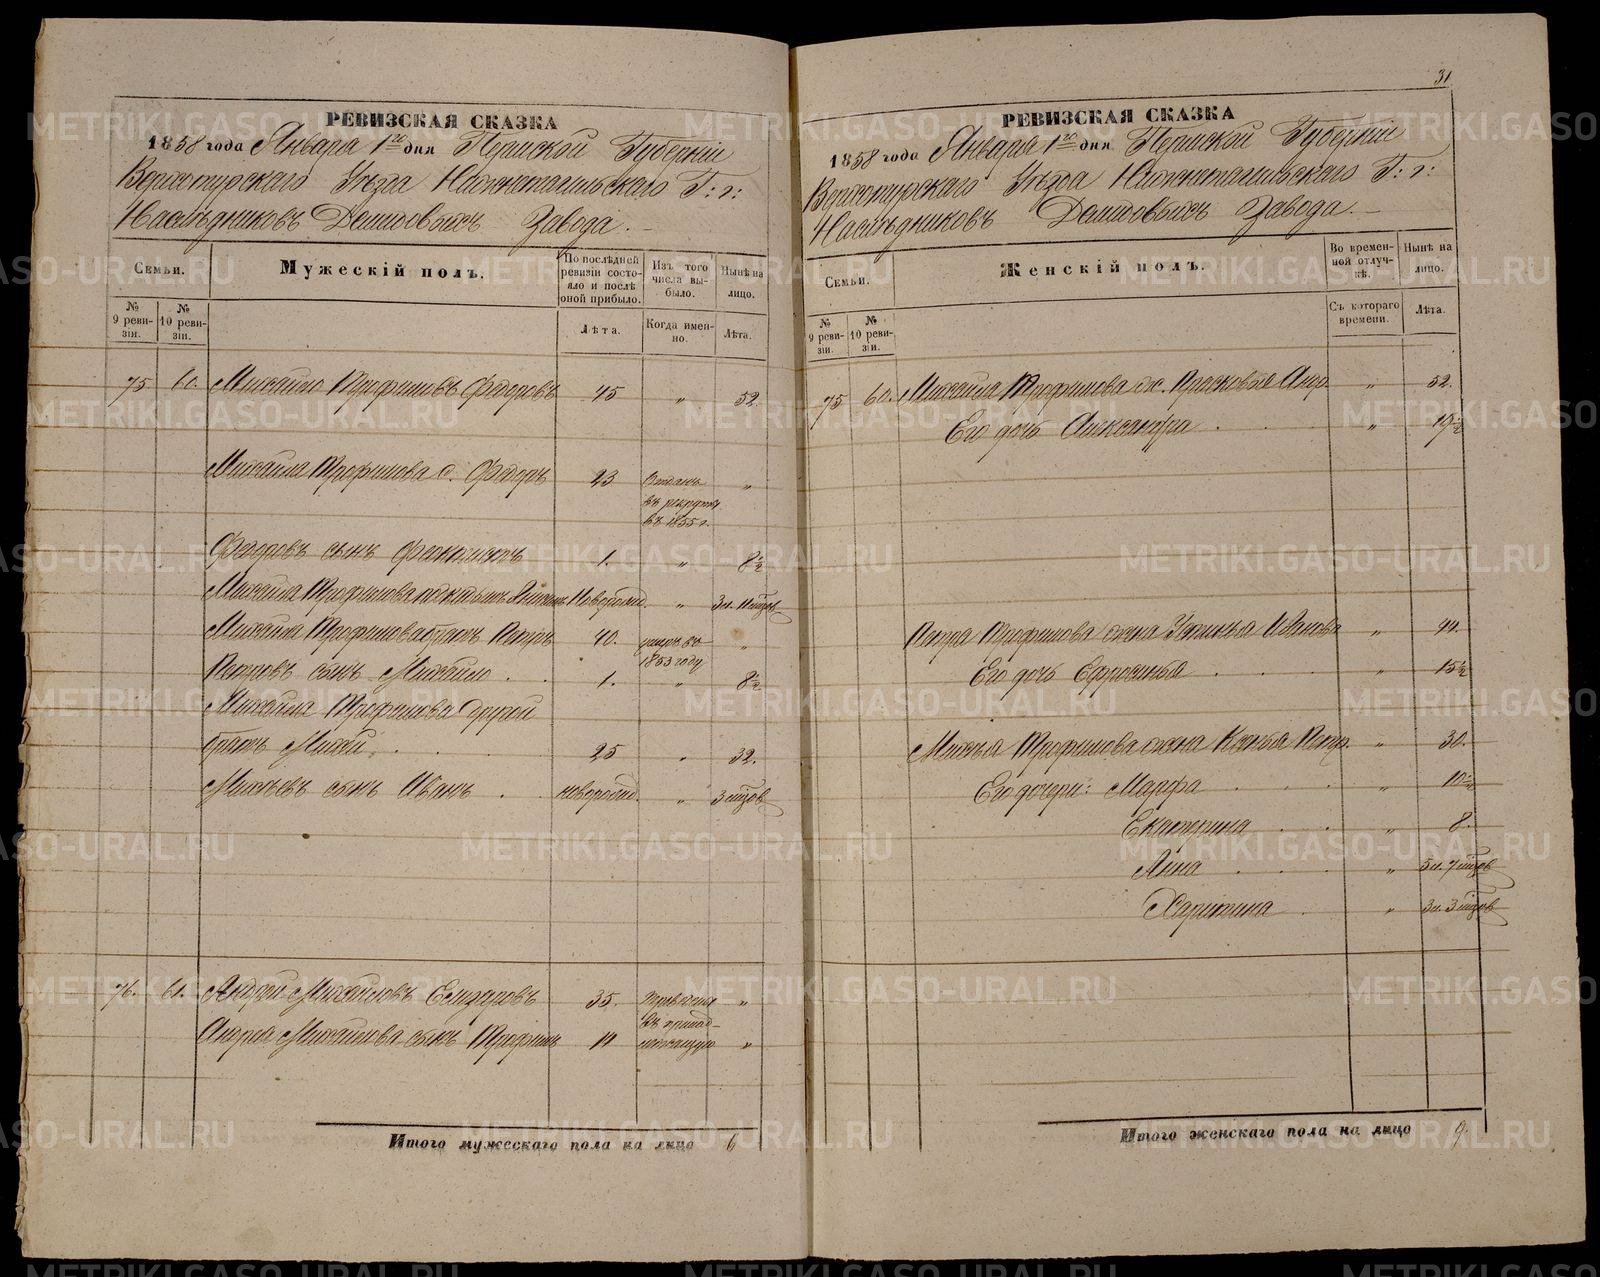 РЕВИЗСКАЯ СКАЗКА
1858 года Января 1го дня Пермской Губерніи
Верхотурскаго Уѣзда Нижнетагильскаго Г: г:
Наслѣдниковъ Демидовыхъ Завода.
Семьи.
Мужескій полъ.
По послѣдней ревизіи состояло и послѣ оной прибыло.
Изъ того числа выбыло.
Нынѣ на лицо.
№ 9 ревизіи.
№ 10 ревизіи.
Лѣта.
Когда именно.
Лѣта.
75 60. Михайло Трофимовъ Федоровъ 45 " 52.
Михайла Трофимова с. Федоръ 23 Отданъ въ рекруты въ 1855 г. "
Федоровъ сынъ 1. " 8½
Михайла Трофимова Новорожд. " 3 л. 11 мцов
Михайла Трофимова братъ Петръ 40. умеръ въ 1853 году "
Петровъ сынъ Михайло 1. " 8½
Михайла Трофимова другой
братъ Михей 25 " 32.
Михеевъ сынъ Иванъ новорожд. " 3 мцов
76. 61. Андрей Михайловъ 35. "
Андрея Михайлова сынъ Трофимъ 11 "
Итого мужескаго пола на лицо 6
31
РЕВИЗСКАЯ СКАЗКА
1858 года Января 1го дня Пермской Губерніи
Верхотурскаго Уѣзда Нижнетагильскаго Г: г:
Наслѣдниковъ Демидовыхъ Завода.
Семьи.
Женскій полъ.
Во временной отлучкѣ.
Нынѣ на лицо.
№ 9 ревизіи.
№ 10 ревизіи.
Съ котораго времени.
Лѣта.
75 60. Михайла Трофимова ж. Прасковья Андр. " 52.
Его дочь Александра " 19½
Петра Трофимова жена Иванова " 44.
Его дочь Ефросинья " 15½
Михея Трофимова жена Ксенья Петр. " 30.
Его дочери: Марфа " 10½
Екатерина " 8.
Анна " 5 л. 7 мцов
Харитина " 3 л. 3 мцов
Итого женскаго пола на лицо 9.
METRIKI.GASO-URAL.RU